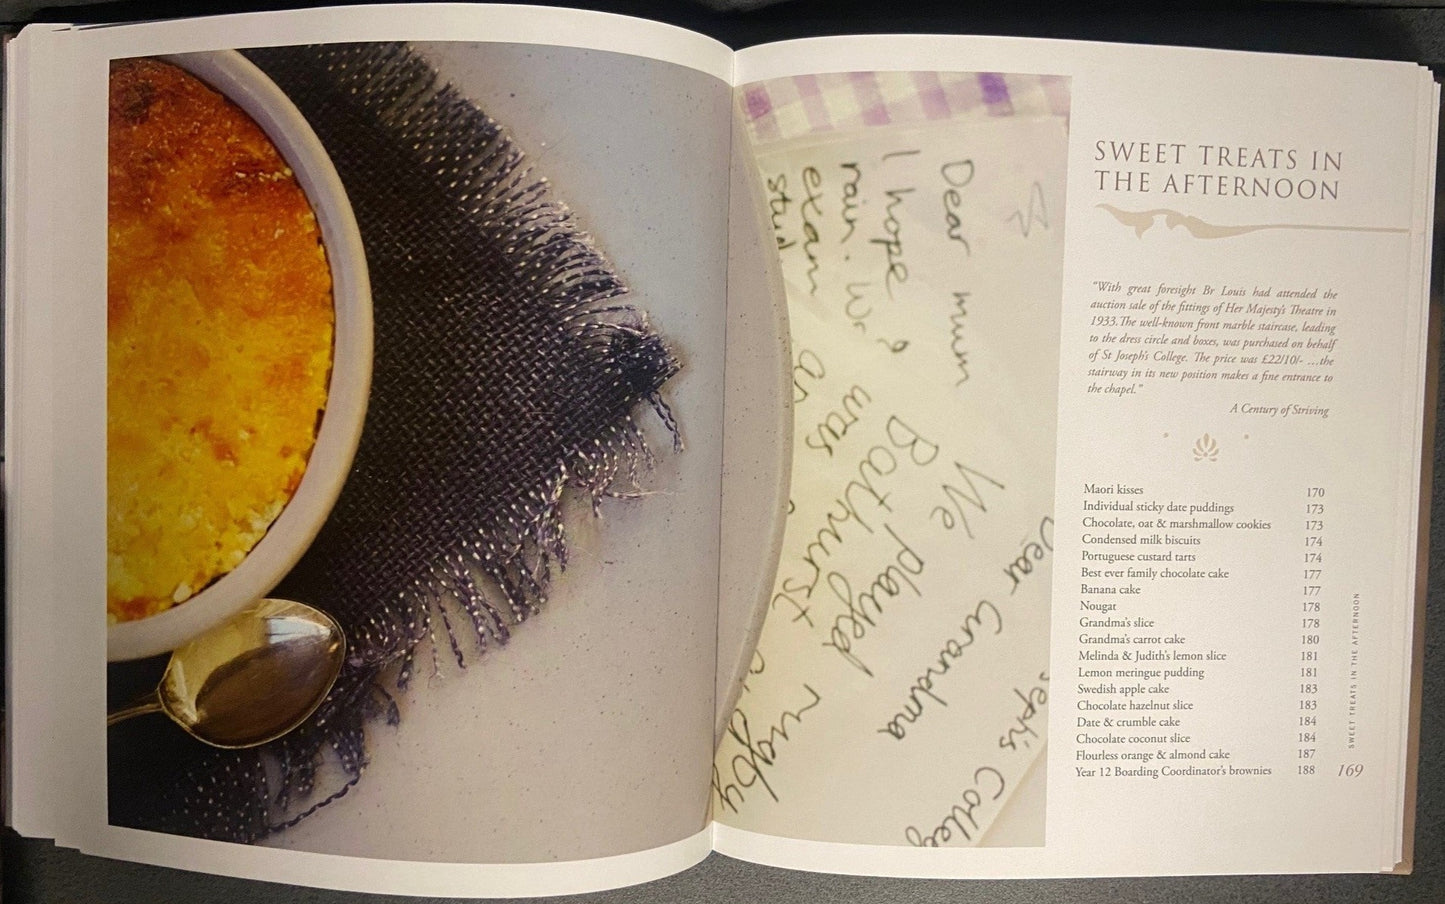 Dear mum
I hope
rain.
exam
stud
was
We played
Bathurst
rugby
Dear Grandma
seph's Colleg
SWEET TREATS IN
THE AFTERNOON
"With great foresight Br Louis had attended the
auction sale of the fittings of Her Majesty's Theatre in
1933. The well-known front marble staircase, leading
to the dress circle and boxes, was purchased on behalf
of St Joseph's College. The price was £22/10/- ...the
stairway in its new position makes a fine entrance to
the chapel."
A Century of Striving
Maori kisses 170
Individual sticky date puddings 173
Chocolate, oat & marshmallow cookies 173
Condensed milk biscuits 174
Portuguese custard tarts 174
Best ever family chocolate cake 177
Banana cake 177
Nougat 178
Grandma's slice 178
Grandma's carrot cake 180
Melinda & Judith's lemon slice 181
Lemon meringue pudding 181
Swedish apple cake 183
Chocolate hazelnut slice 183
Date & crumble cake 184
Chocolate coconut slice 184
Flourless orange & almond cake 187
Year 12 Boarding Coordinator's brownies 188
SWEET TREATS IN THE AFTERNOON
169